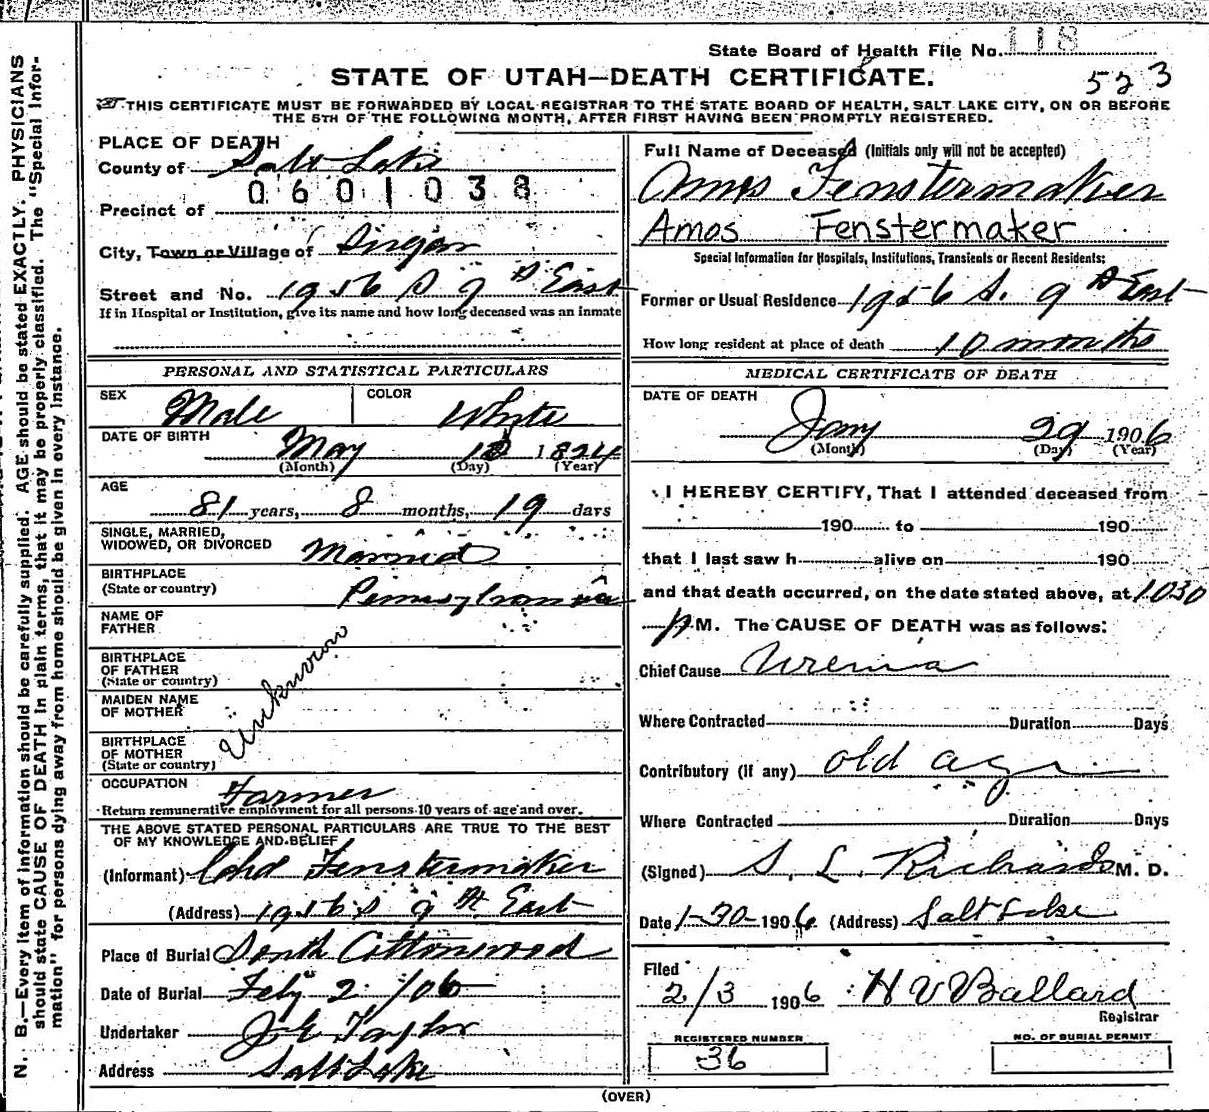 State Board of Health File No. 118
STATE OF UTAH—DEATH CERTIFICATE.
523
THIS CERTIFICATE MUST BE FORWARDED BY LOCAL REGISTRAR TO THE STATE BOARD OF HEALTH, SALT LAKE CITY, ON OR BEFORE
THE 5TH OF THE FOLLOWING MONTH, AFTER FIRST HAVING BEEN PROMPTLY REGISTERED.
PLACE OF DEATH
County of Salt Lake
0601038
Precinct of
City, Town or Village of
Street and No. 1956 S 9th East
If in Hospital or Institution, give its name and how long deceased was an inmate
Full Name of Deceased (Initials only will not be accepted)
Amos Fenstermaker
Amos Fenstermaker
Special Information for Hospitals, Institutions, Transients or Recent Residents:
Former or Usual Residence 1956 S. 9th East
How long resident at place of death 10 months
PERSONAL AND STATISTICAL PARTICULARS
SEX Male COLOR White
DATE OF BIRTH May 10 1824
(Month) (Day) (Year)
AGE
81 years, 8 months, 19 days
SINGLE, MARRIED,
WIDOWED, OR DIVORCED Married
BIRTHPLACE
(State or country) Pennsylvania
NAME OF
FATHER
BIRTHPLACE
OF FATHER
(State or country)
MAIDEN NAME
OF MOTHER
BIRTHPLACE
OF MOTHER
(State or country)
Unknown
OCCUPATION Farmer
Return remunerative employment for all persons 10 years of age and over.
THE ABOVE STATED PERSONAL PARTICULARS ARE TRUE TO THE BEST
OF MY KNOWLEDGE AND BELIEF
(Informant) Fenstermaker
(Address) 1956 S 9th East
Place of Burial South Cottonwood
Date of Burial Feby 2 /06
Undertaker J E Taylor
Address Salt Lake
MEDICAL CERTIFICATE OF DEATH
DATE OF DEATH
Jany 29 1906
(Month) (Day) (Year)
I HEREBY CERTIFY, That I attended deceased from
190 to 190
that I last saw h alive on 190
and that death occurred, on the date stated above, at 1030
P M. The CAUSE OF DEATH was as follows:
Chief Cause Uremia
Where Contracted Duration Days
Contributory (if any) old age
Where Contracted Duration Days
(Signed) S. L. Richards M. D.
Date 1-30-1906 (Address) Salt Lake
Filed
2/3 1906 H V Ballard
Registrar
REGISTERED NUMBER
36
NO. OF BURIAL PERMIT
(OVER)
N. B.—Every item of information should be carefully supplied. AGE should be stated EXACTLY. PHYSICIANS
should state CAUSE OF DEATH in plain terms, that it may be properly classified. The "Special Infor-
mation" for persons dying away from home should be given in every instance.